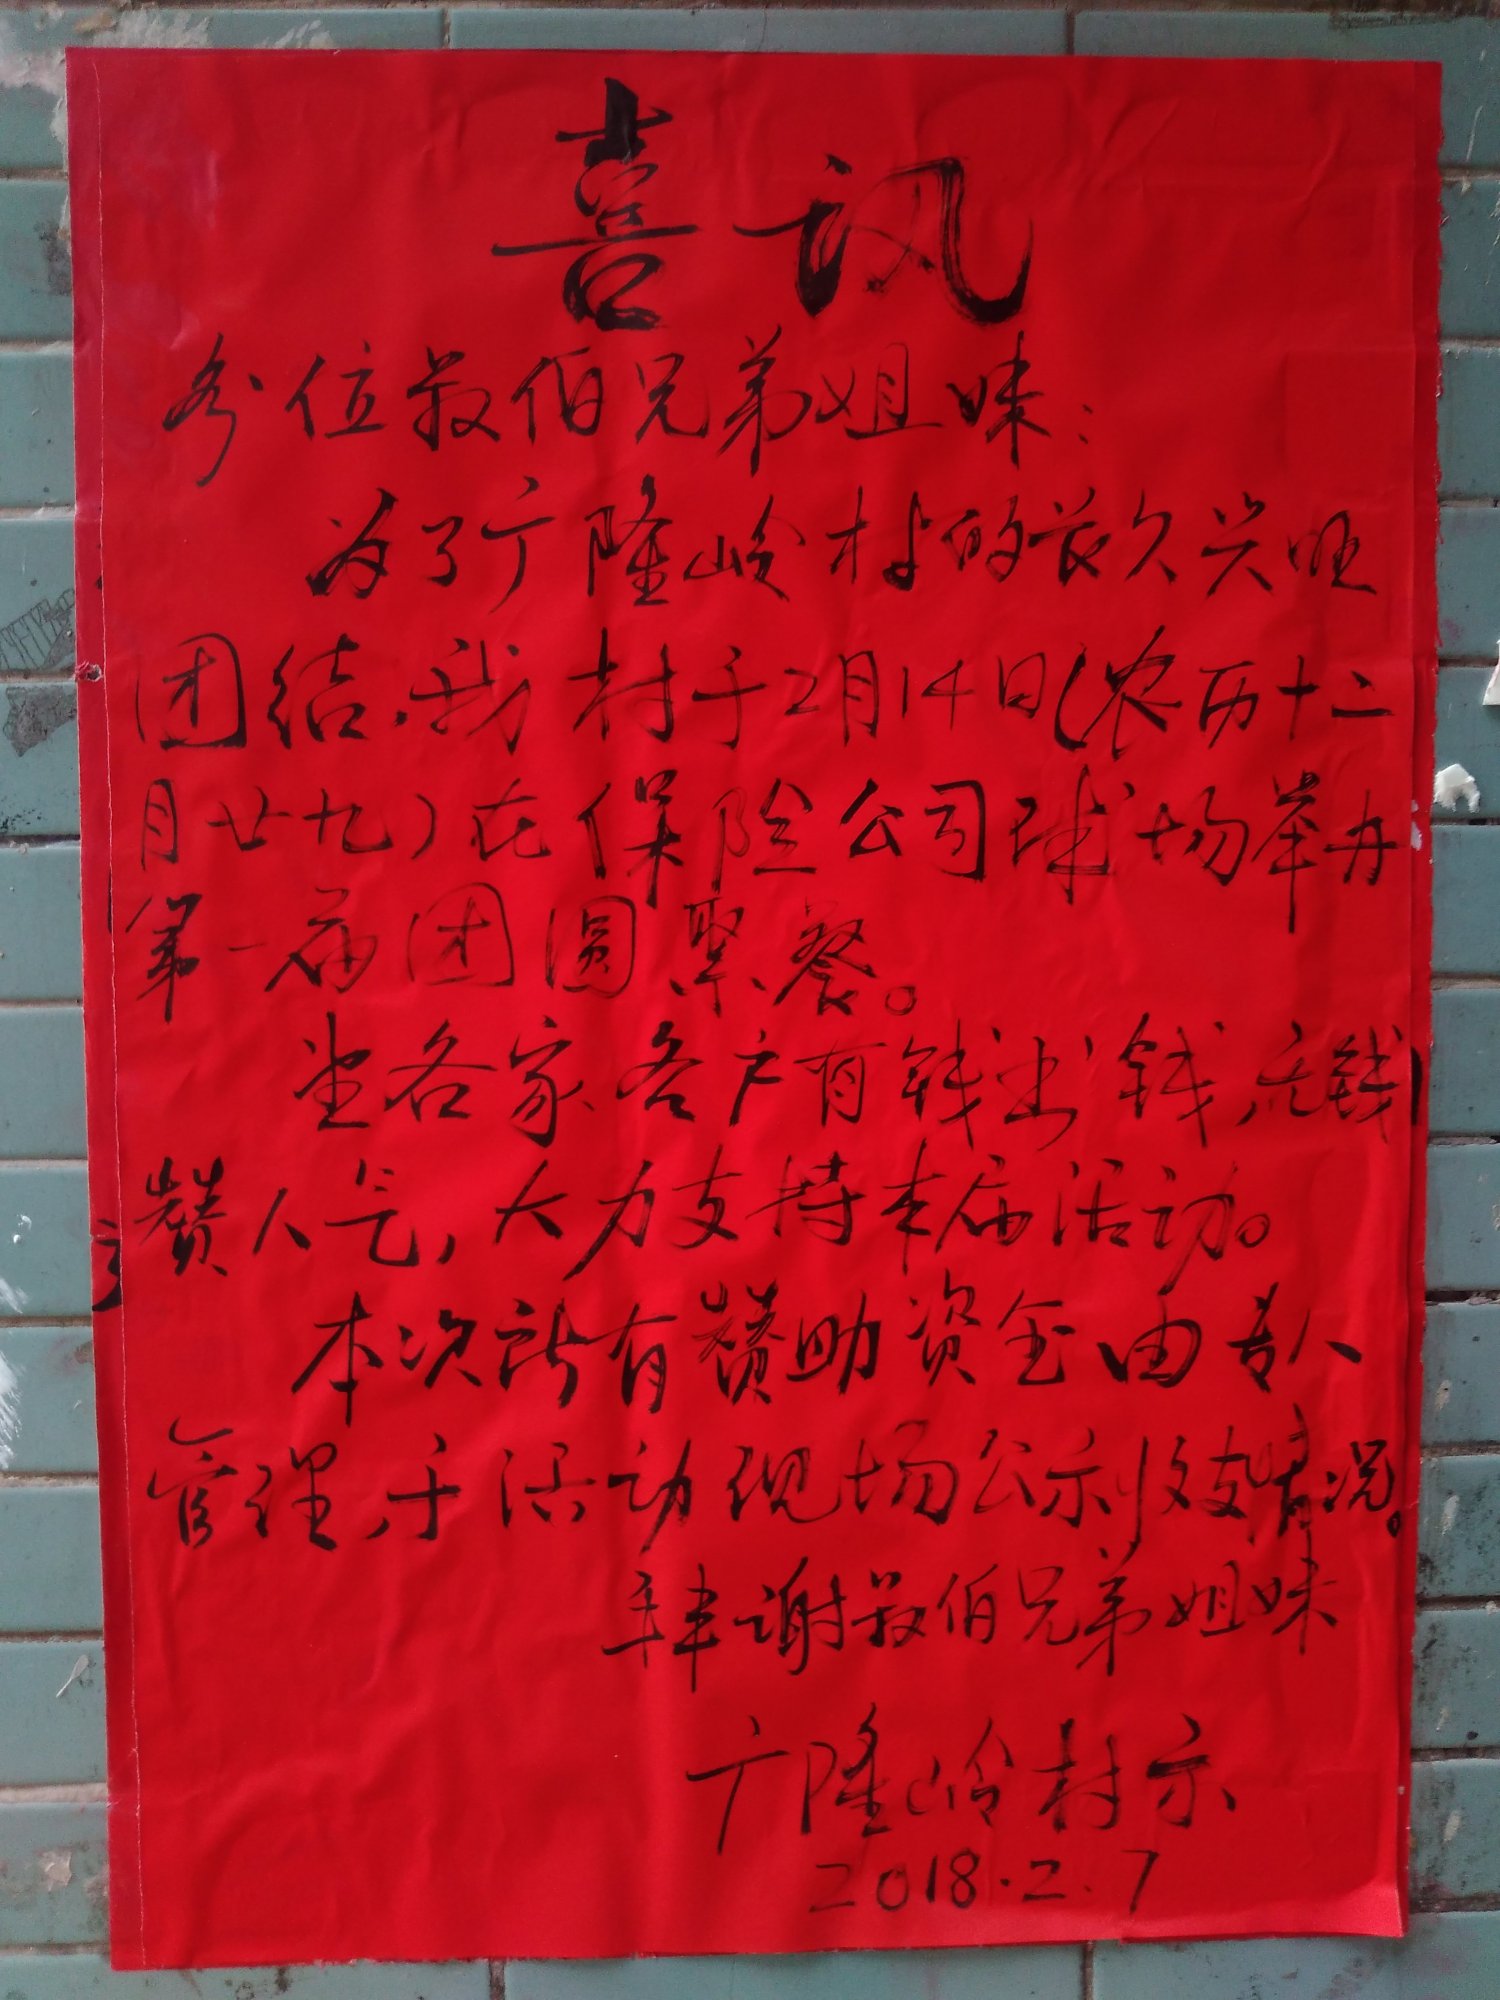 喜讯
各位叔伯兄弟姐妹：
为了广隆岭村的长久兴旺
团结，我村于2月14日（农历十二
月廿九）在保险公司球场举办
第一届团圆聚餐。
望各家各户有钱出钱，无钱
赞人气，大力支持本届活动。
本次所有赞助资金由专人
管理，于活动现场公示收支情况。
拜谢叔伯兄弟姐妹
广隆岭村示
2018.2.7